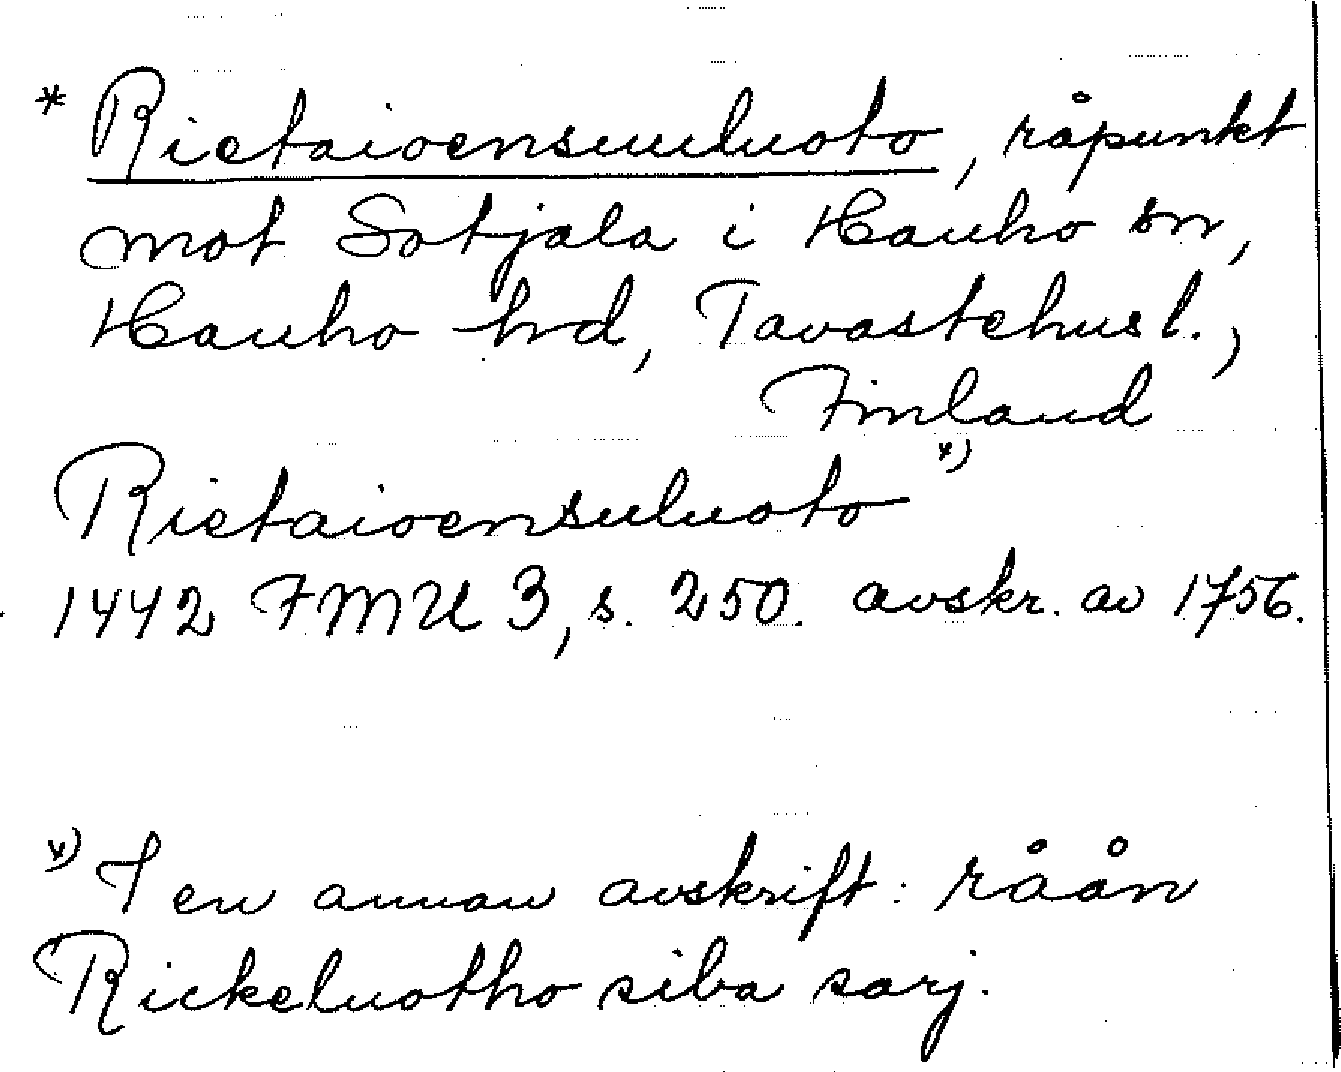 * Rietaioensuuluoto, råpunkt
mot Sotjala i Hauho sn,
Hauho hrd, Tavastehus l.,
Finland
Rietaioensuluoto x)
1442 FMU 3, s. 250. avskr. av 1756.
x) I en annan avskrift: råån
Rickeluotho siba sarj.